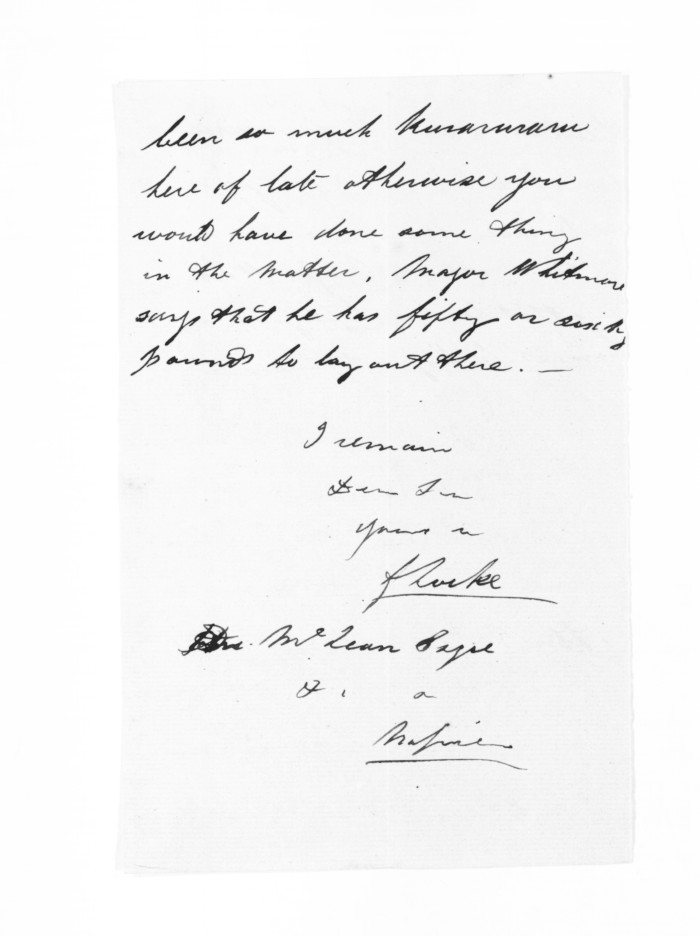 been so much Kurarururu
here of late otherwise you
would have done some thing
in the matter. Major Whitmore
says that he has fifty or sixty
pounds to lay out there. —
I remain
Dear Sir
Yours
S Locke
Mc Lean Esqre
&
Napier